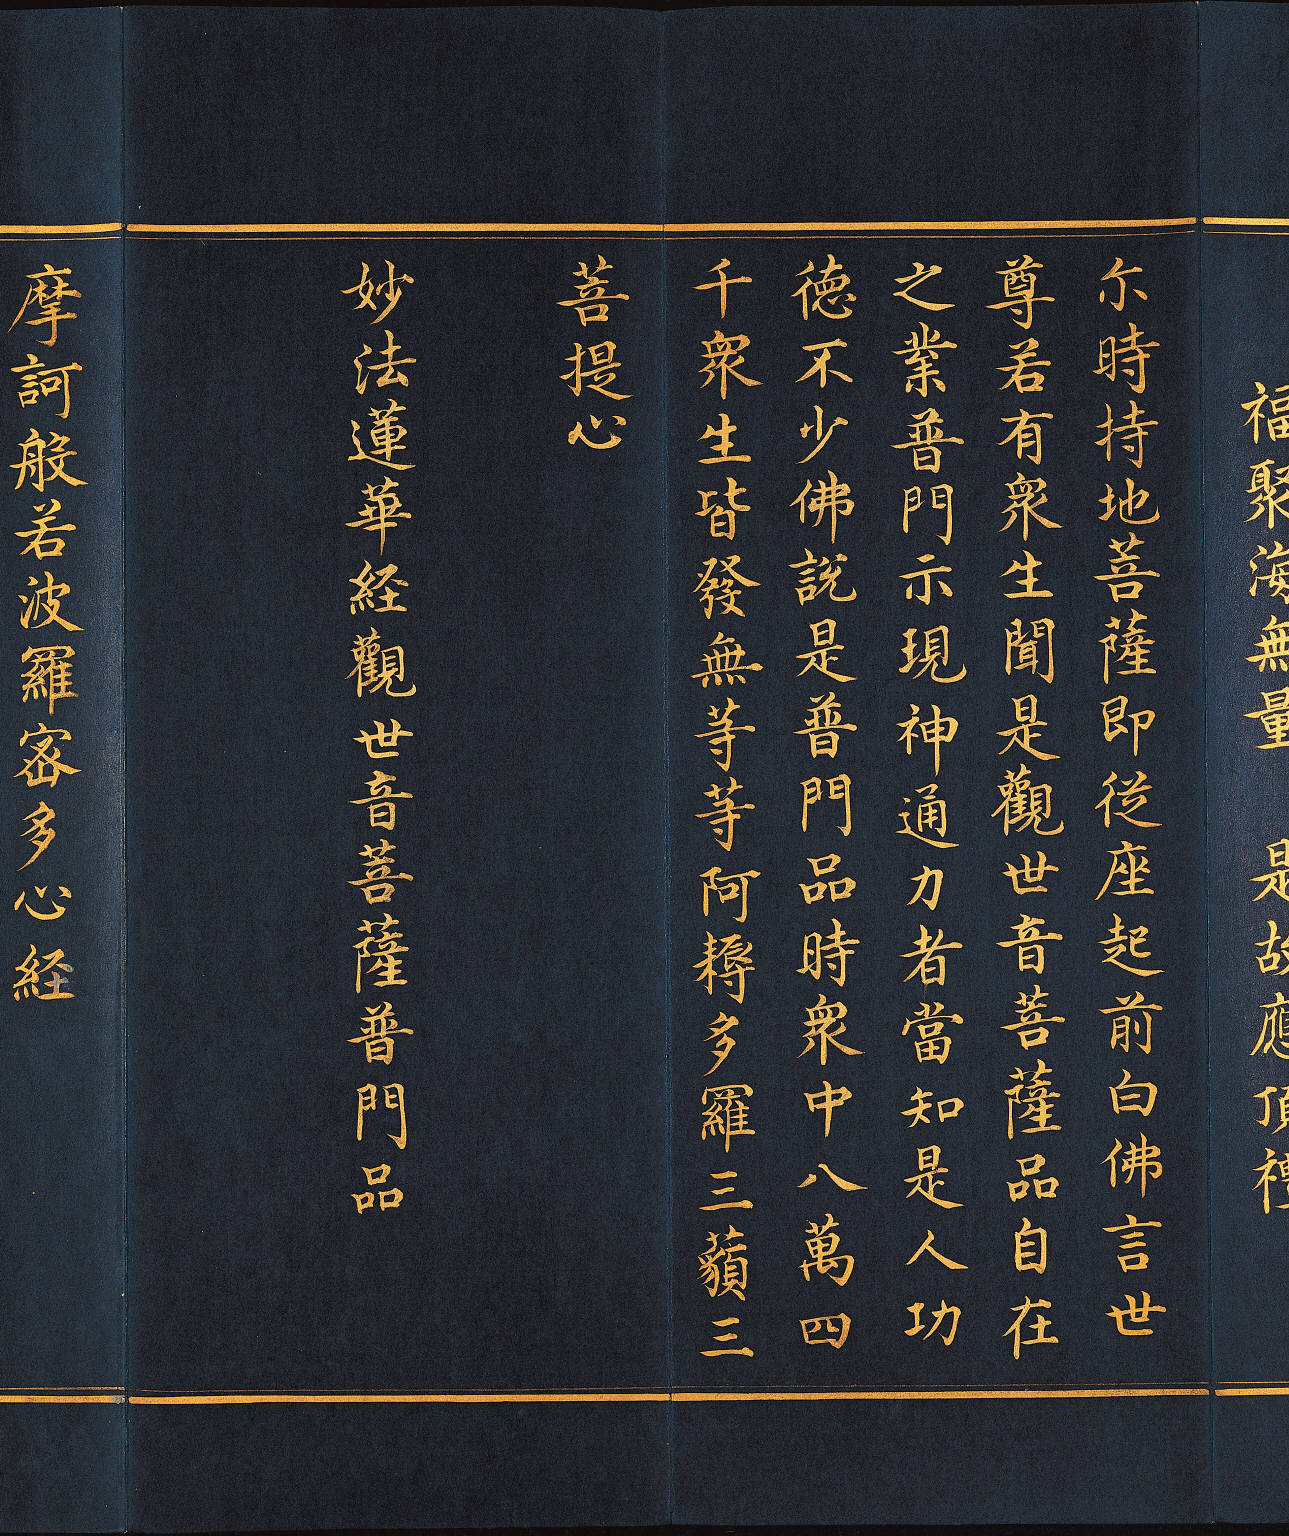 福聚海無量　是故應頂禮
尒時持地菩薩即從座起前白佛言世
尊若有衆生聞是觀世音菩薩品自在
之業普門示現神通力者當知是人功
德不少佛說是普門品時衆中八萬四
千衆生皆發無等等阿耨多羅三藐三
菩提心
妙法蓮華経觀世音菩薩普門品
摩訶般若波羅蜜多心経